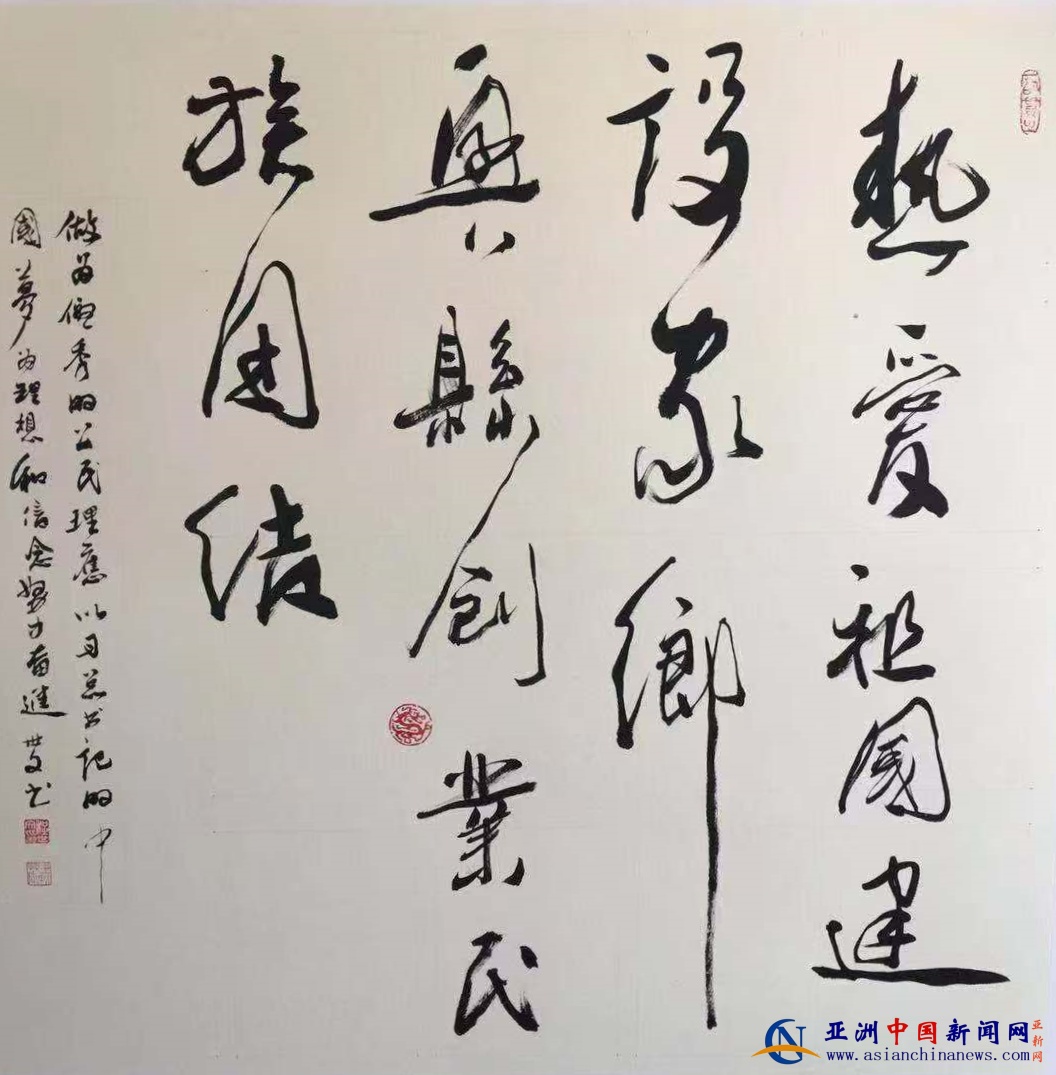 熱愛祖國建
設家鄉
興縣創業民
族團結
做當優秀的公民理應以習总书記的中
國夢为理想和信念努力奋進 世文书
亚洲中国新闻网
亚新网
www.asianchinanews.com